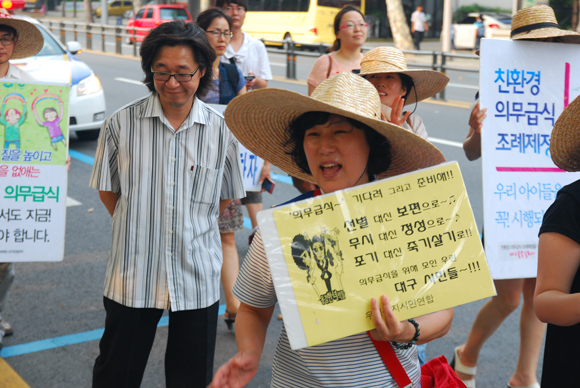 질 높이고
차별 없애는
의무급식
서도 지금!
야 합니다.
"의무급식~ 기다려 그리고 준비해!!
선별 대신 보편으로~♪
무시 대신 정성으로~
포기 대신 죽기살기로!!
의무급식을 위해 모인 우리
대구 시민들~!!!
우리복지시민연합
친환경
의무급식
조례제정
우리 아이들
꼭, 시행되